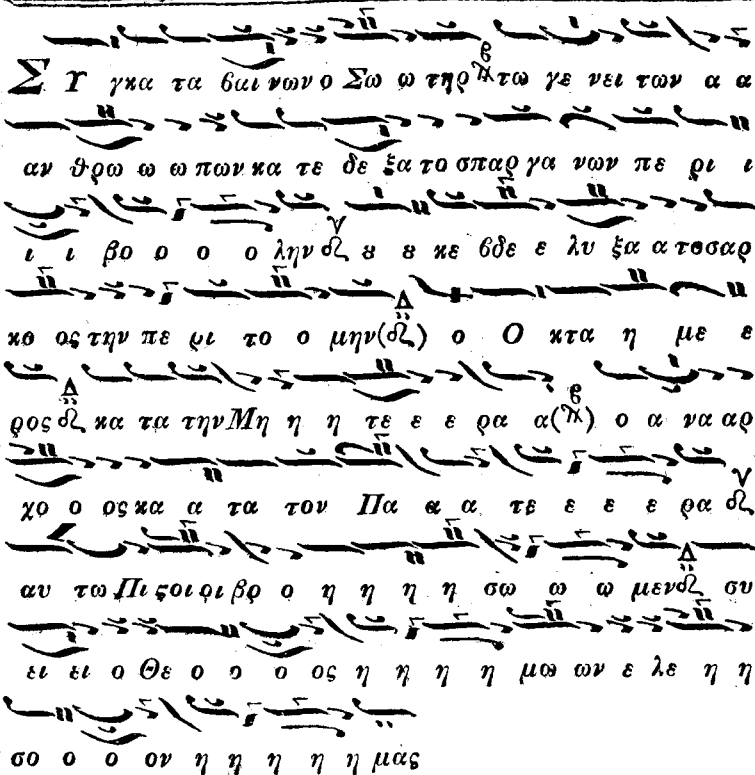 Σ Υ γκα τα βαι νων ο Σω ω τηρ τω γε νει των α α
αν θρω ω ω πων κα τε δε ξα το σπαρ γα νων πε ρι ι
ι ι βο ο ο ο λην ȣ ȣ κε βδε ε λυ ξα α το σαρ
κο ος την πε ρι το ο μην ( ) ο Ο κτα η με ε
ρος κα τα την Μη η η τε ε ε ρα α ( ) ο α να αρ
χο ο ος κα α τα τον Πα α α τε ε ε ε ρα
αυ τω Πι ϛοι οι βο ο η η η η σω ω ω μεν συ
ει ει ο Θε ο ο ο ος η η η η μω ων ε λε η η
σο ο ο ον η η η η η μας